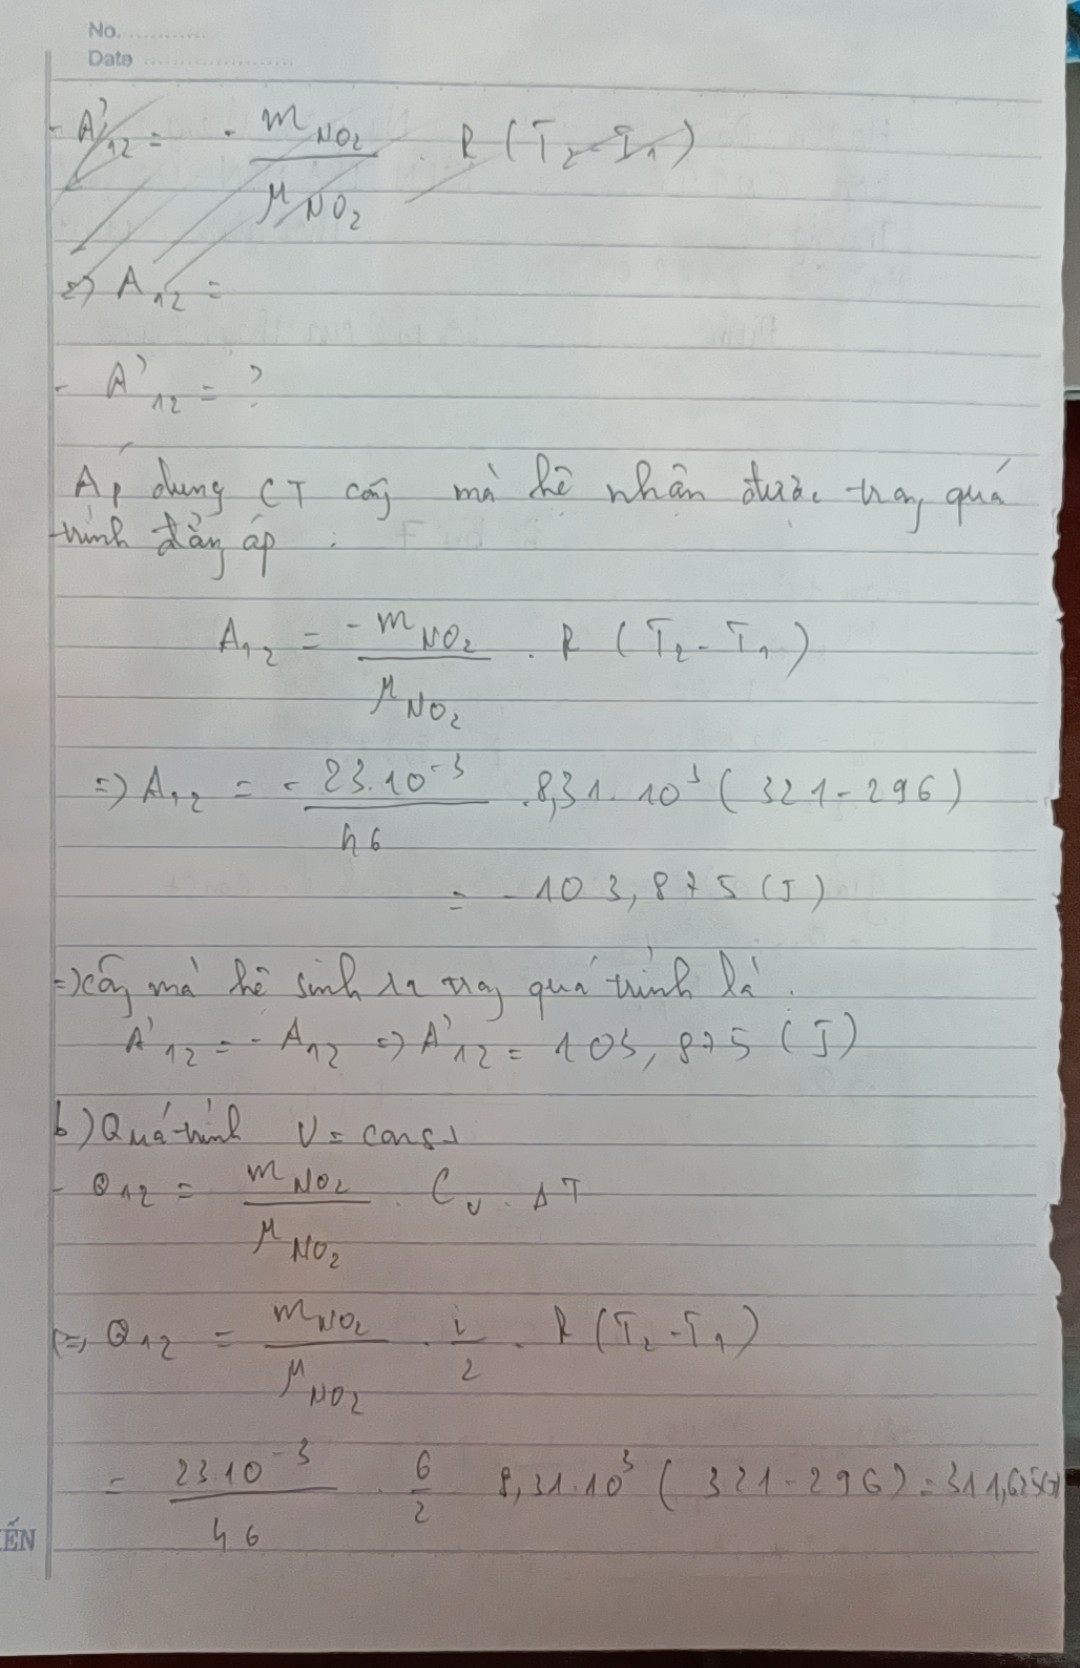 No. ............
Date ......................
- A'₁₂ = - m NO₂ / μ NO₂ . R (T₂ - T₁)
=> A₁₂ =
- A'₁₂ = ?
Áp dụng CT công mà hệ nhận được trong quá
trình đẳng áp :
A₁₂ = -m NO₂ / μ NO₂ . R (T₂ - T₁)
=> A₁₂ = - 23.10⁻³ / 46 .8,31.10³ (321-296)
= -103,875 (J)
=> công mà hệ sinh ra trong quá trình là :
A'₁₂ = - A₁₂ => A'₁₂ = 103,875 (J)
b) Quá trình V = const
- Q₁₂ = m NO₂ / μ NO₂ . Cᵥ . ΔT
<=> Q₁₂ = m NO₂ / μ NO₂ . i/2 . R (T₂ - T₁)
= 23.10⁻³ / 46 . 6/2 8,31.10³ (321-296) = 311,625(J)
ẾN